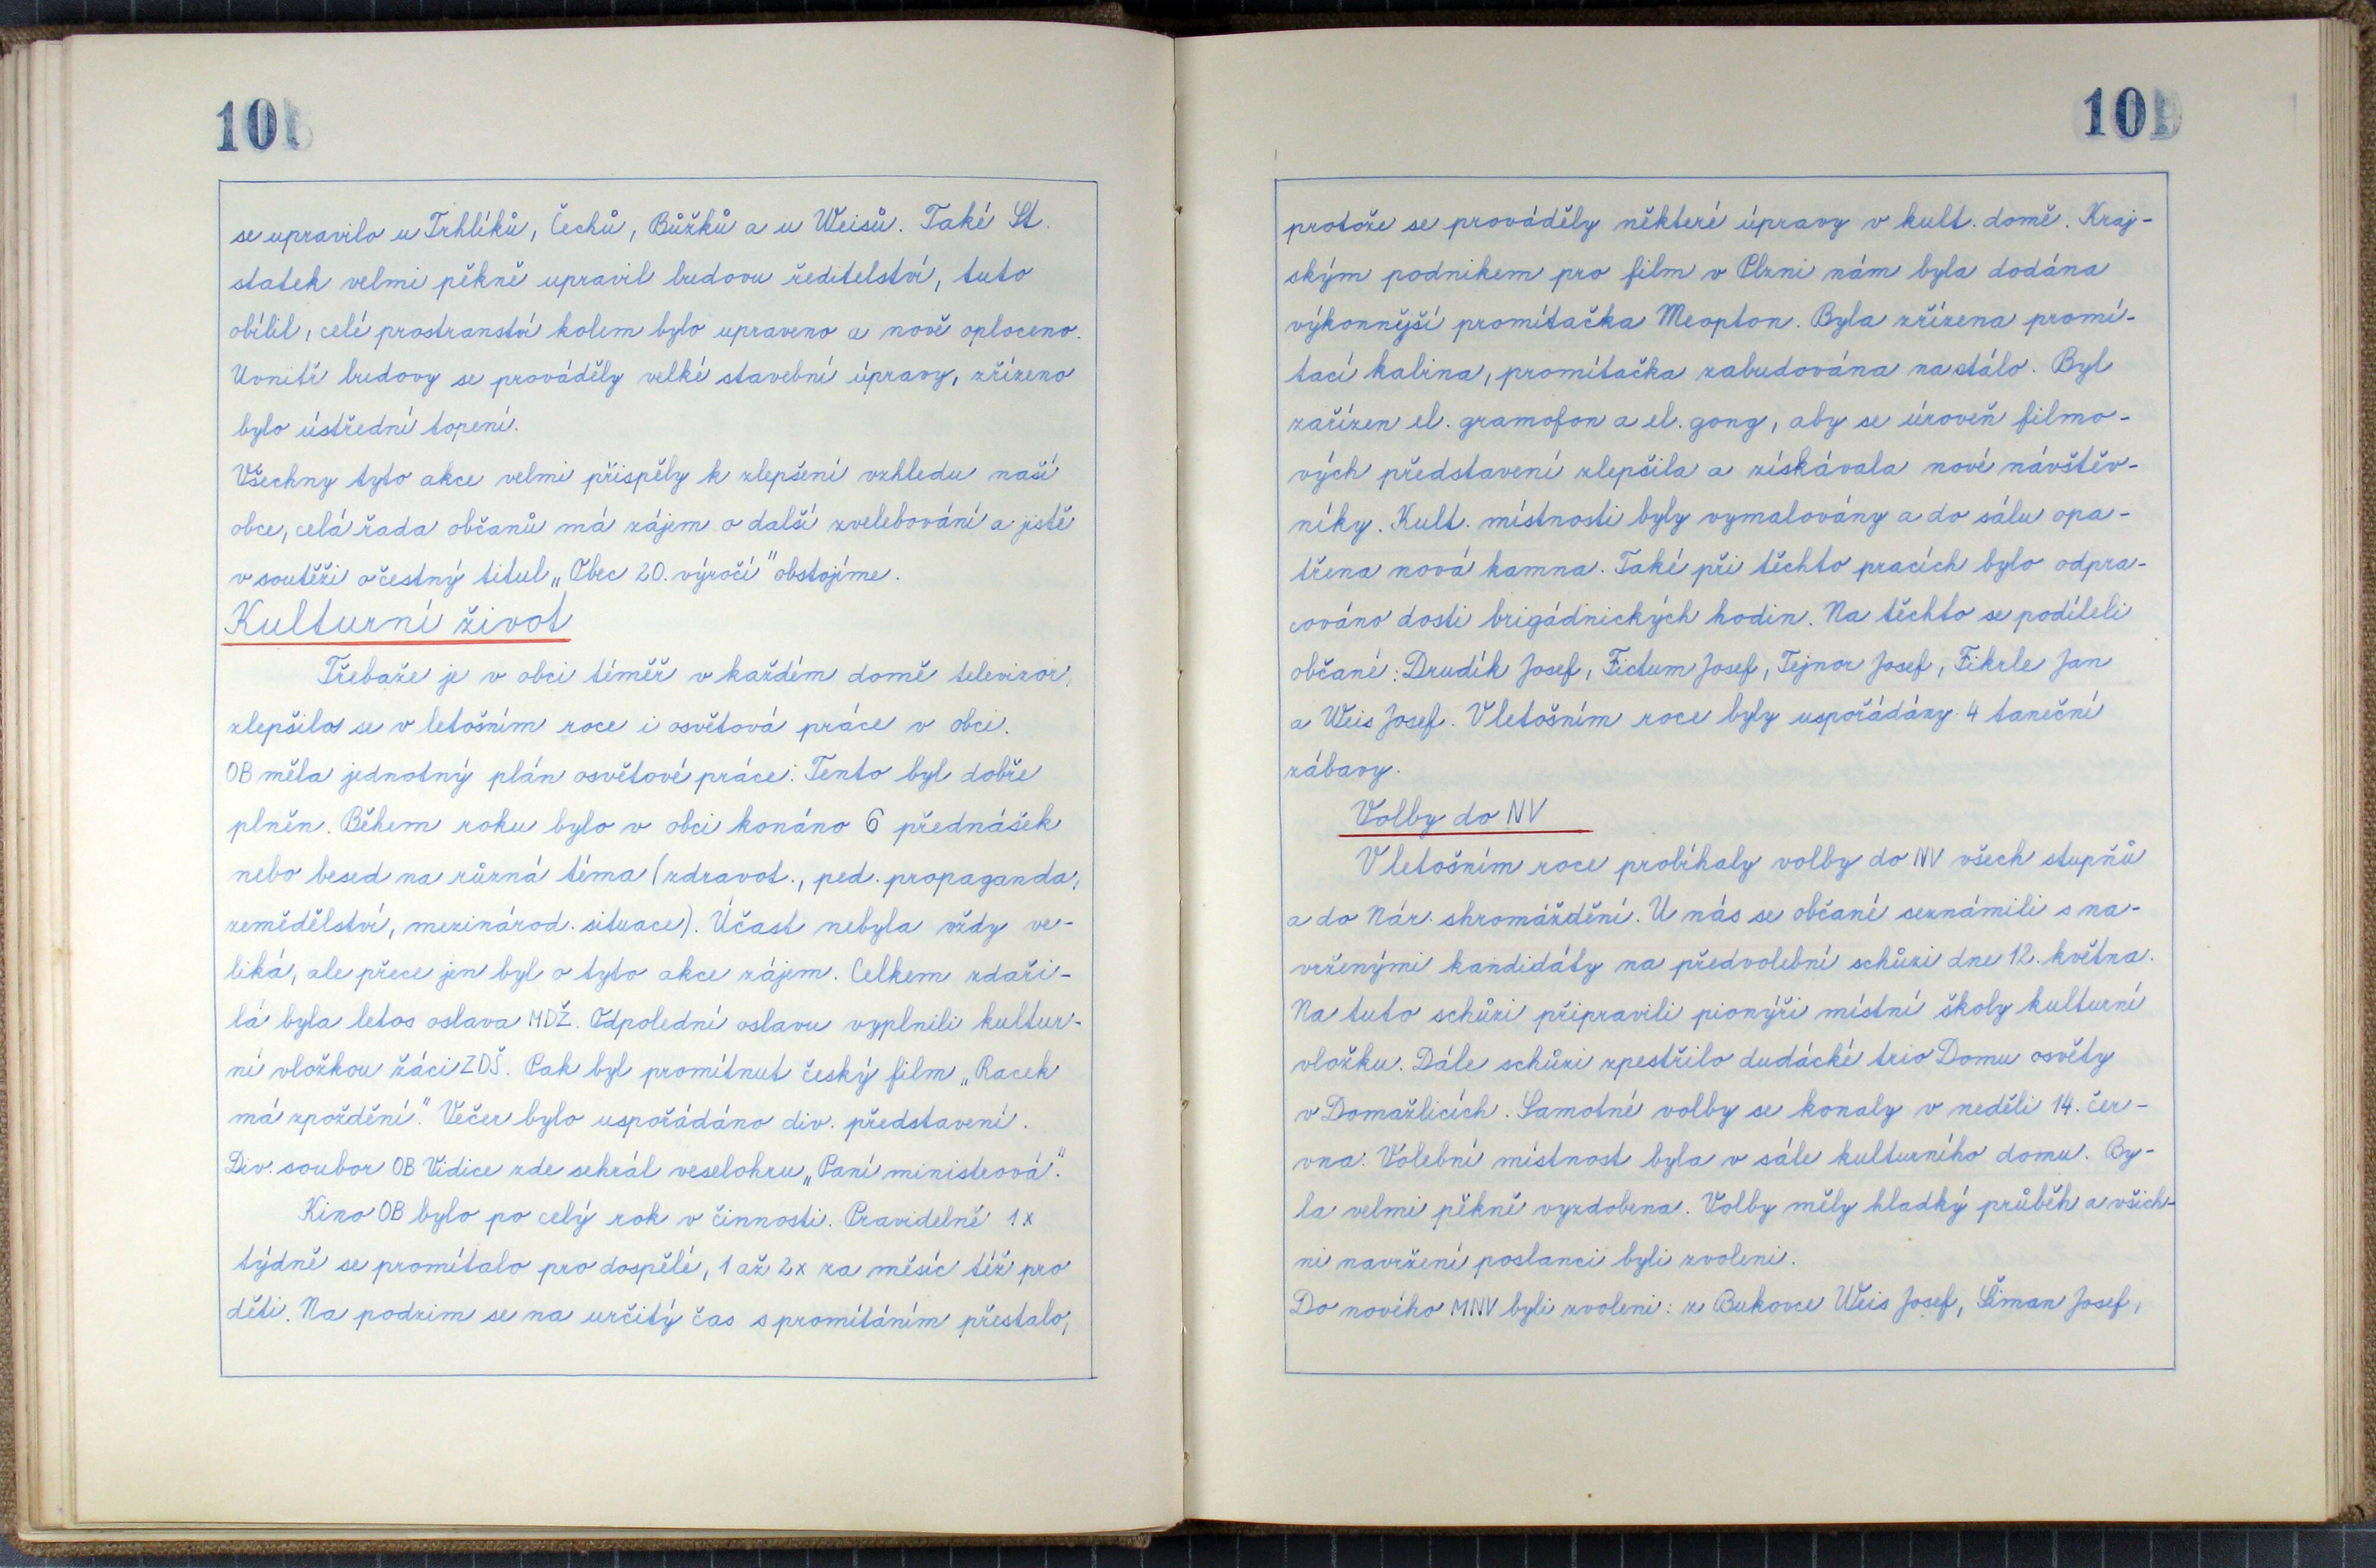 10
se upravilo u Trhlíků, Čechů, Bůžků a u Weisů. Také St.
statek velmi pěkně upravil budovu ředitelství, tuto
obílil, celé prostranství kolem bylo upraveno a nově oploceno.
Uvnitř budovy se prováděly velké stavební úpravy, zřízeno
bylo ústřední topení.
Všechny tyto akce velmi přispěly k zlepšení vzhledu naší
obce, celá řada občanů má zájem o další zvelebování a jistě
v soutěži o čestný titul „Obec 20. výročí" obstojíme.
Kulturní život
Třebaže je v obci téměř v každém domě televizor,
zlepšilos se v letošním roce i osvětová práce v obci.
OB měla jednotný plán osvětové práce. Tento byl dobře
plněn. Během roku bylo v obci konáno 6 přednášek
nebo besed na různá téma (zdravot., ped. propaganda,
zemědělství, mezinárod. situace). Účast nebyla vždy ve-
liká, ale přece jen byl o tyto akce zájem. Celkem zdaři-
lá byla letos oslava MDŽ. Odpolední oslavu vyplnili kultur-
ní vložkou žáci ZDŠ. Pak byl promítnut český film „Racek
má zpoždění". Večer bylo uspořádáno div. představení.
Div. soubor OB Vidice zde sehrál veselohru „Paní ministrová".
Kino OB bylo po celý rok v činnosti. Pravidelně 1x
týdně se promítalo pro dospělé, 1 až 2x za měsíc též pro
děti. Na podzim se na určitý čas s promítáním přestalo,
10
protože se prováděly některé úpravy v kult. domě. Kraj-
ským podnikem pro film v Plzni nám byla dodána
výkonnější promítačka Meopton. Byla zřízena promí-
tací kabina, promítačka zabudována nastálo. Byl
zařízen el. gramofon a el. gong, aby se úroveň filmo-
vých představení zlepšila a získávala nové návštěv-
níky. Kult. místnosti byly vymalovány a do sálu opa-
třena nová kamna. Také při těchto pracích bylo odpra-
cováno dosti brigádnických hodin. Na těchto se podíleli
občané: Drudík Josef, Fictum Josef, Tejnor Josef, Fikrle Jan
a Weis Josef. V letošním roce byly uspořádány 4 taneční
zábavy.
Volby do NV
V letošním roce probíhaly volby do NV všech stupňů
a do Nár. shromáždění. U nás se občané seznámili s na-
vrženými kandidáty na předvolební schůzi dne 12. května.
Na tuto schůzi připravili pionýři místní školy kulturní
vložku. Dále schůzi zpestřilo dudácké trio Domu osvěty
v Domažlicích. Samotné volby se konaly v neděli 14. čer-
vna. Volební místnost byla v sále kulturního domu. By-
la velmi pěkně vyzdobena. Volby měly hladký průběh a všich-
ni navržení poslanci byli zvoleni.
Do nového MNV byli zvoleni: z Bukovce Weis Josef, Šiman Josef,